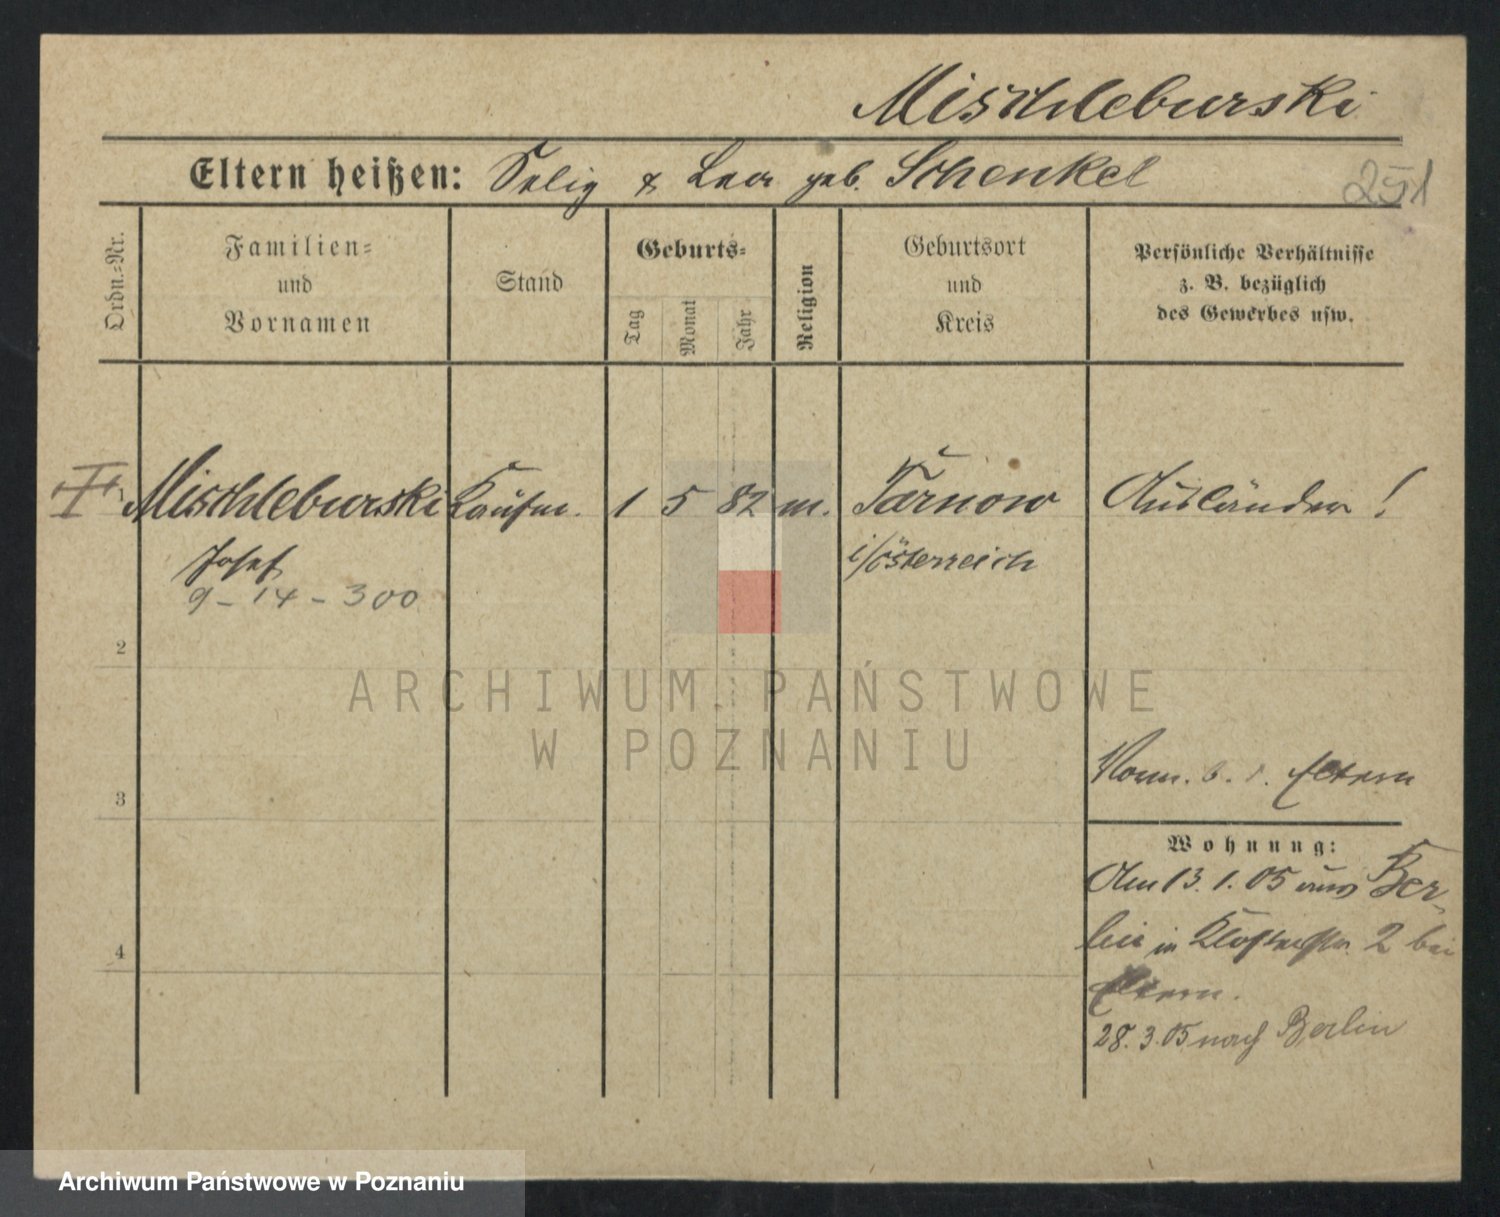 Mischleburski
Eltern heißen: Selig & Lea geb. Schenkel
251
Ordn.=Nr.
Familien=
und
Vornamen
Stand
Geburts=
Tag
Monat
Jahr
Religion
Geburtsort
und
Kreis
Persönliche Verhältnisse
z. B. bezüglich
des Gewerbes usw.
1 Mischleburski Kaufm. 1 5 82 m. Tarnow Ausländer!
Josef i/österreich
9 - 14 - 300
2
ARCHIWUM PAŃSTWOWE
W POZNANIU
3
Eltern
Wohnung:
Am 13. 1. 05 aus Ber-
lin in Klosterstr. 2 bei
Eltern.
4
28. 3. 05 nach Berlin
Archiwum Państwowe w Poznaniu